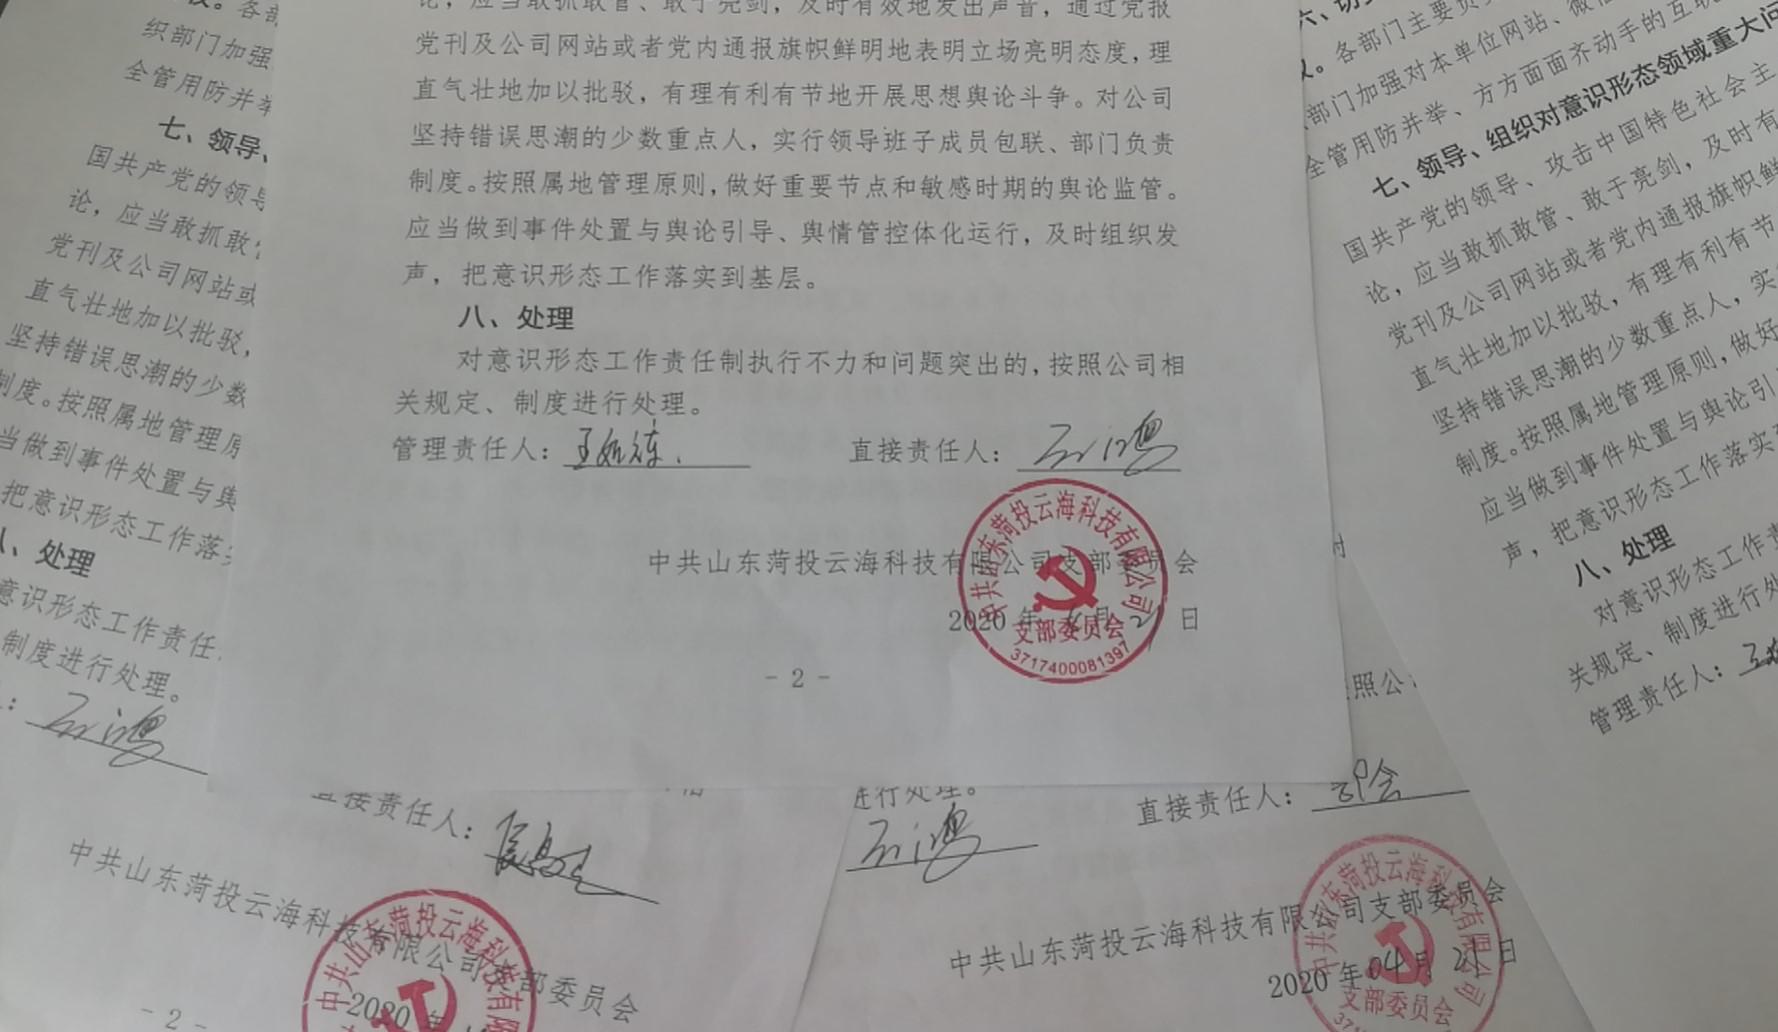 论，应当敢抓敢管、敢于亮剑，及时有效地发出声音，通过党报
党刊及公司网站或者党内通报旗帜鲜明地表明立场亮明态度，理
直气壮地加以批驳，有理有利有节地开展思想舆论斗争。对公司
坚持错误思潮的少数重点人，实行领导班子成员包联、部门负责
制度。按照属地管理原则，做好重要节点和敏感时期的舆论监管。
应当做到事件处置与舆论引导、舆情管控体化运行，及时组织发
声，把意识形态工作落实到基层。
八、处理
对意识形态工作责任制执行不力和问题突出的，按照公司相
关规定、制度进行处理。
管理责任人： 直接责任人：
中共山东菏投云海科技有限公司支部委员会
2020 年 月 21 日
中共山东菏投云海科技有限公司
支部委员会
3717400081397
- 2 -
织部门加强
全管用防并举
七、领导、
国共产党的领导
论，应当敢抓敢管
党刊及公司网站或
直气壮地加以批驳，
坚持错误思潮的少数
制度。按照属地管理原
当做到事件处置与舆
把意识形态工作落实
八、处理
意识形态工作责任
制度进行处理。
直接责任人：
中共山东菏投云海科技有限公司支部委员会
2020 年
中共山东菏投云海科技有
- 2 -
各部门主要负
部门加强对本单位网站、微信
全管用防并举、方方面面齐动手的互联
七、领导、组织对意识形态领域重大问
国共产党的领导、攻击中国特色社会主
论，应当敢抓敢管、敢于亮剑，及时有
党刊及公司网站或者党内通报旗帜鲜
直气壮地加以批驳，有理有利有节
坚持错误思潮的少数重点人，实
制度。按照属地管理原则，做好
应当做到事件处置与舆论引
声，把意识形态工作落实
八、处理
对意识形态工作责
关规定、制度进行处
管理责任人：
照公
进行处理。
直接责任人：
中共山东菏投云海科技有限公司支部委员会
2020 年 04 月 21 日
中共山东菏投云海科技有限公司
支部委员会